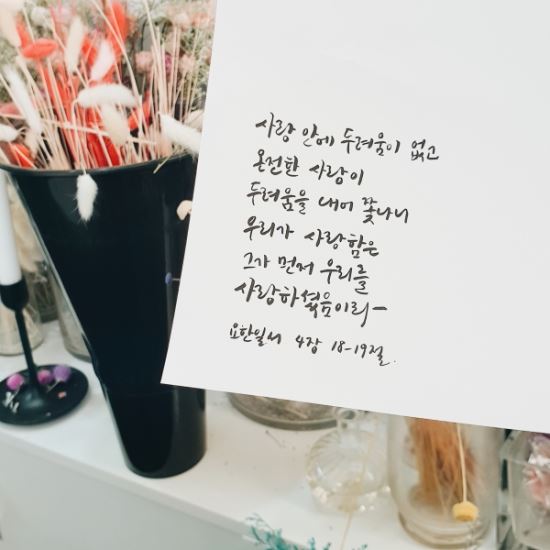 사랑 안에 두려움이 없고
온전한 사랑이
두려움을 내어 쫓나니
우리가 사랑함은
그가 먼저 우리를
사랑하셨음이라-
요한일서 4장 18-19절.